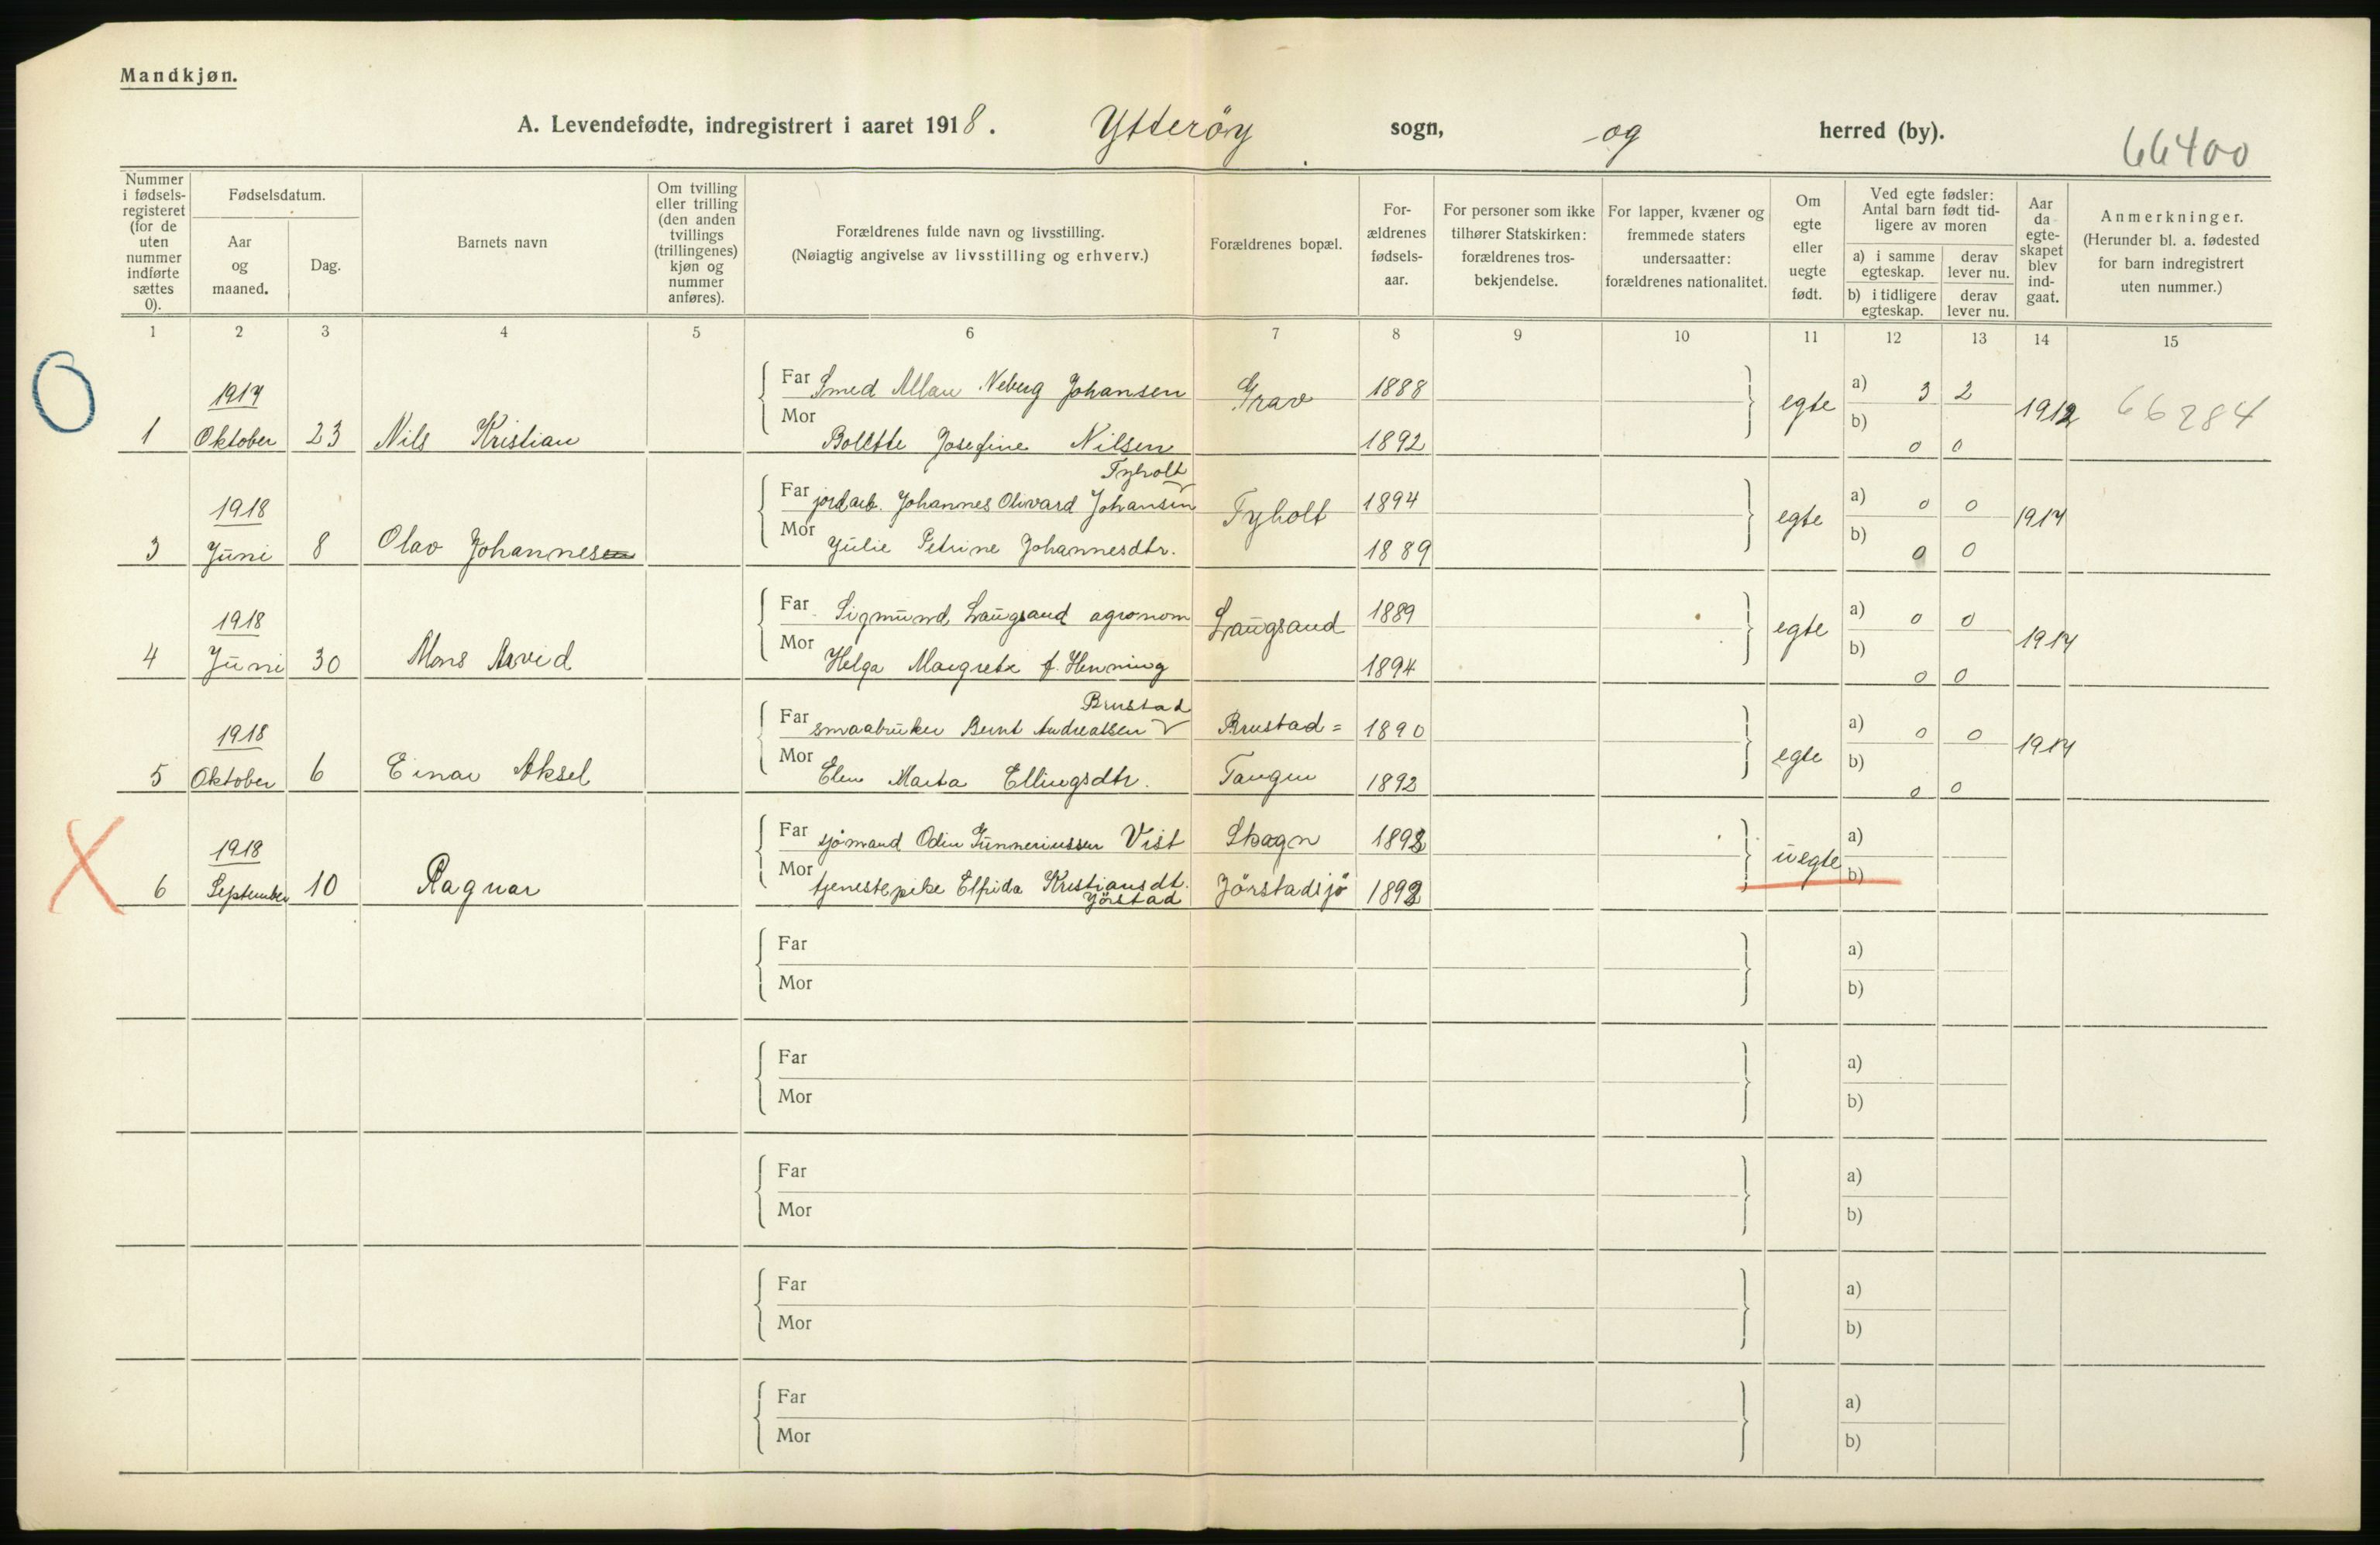 Mandkjøn.
A. Levendefødte, indregistrert i aaret 1918. Ytterøy sogn, og herred (by). 66400
Nummer i fødsels-registeret (for de uten nummer indførte sættes 0).
Fødselsdatum.
Aar og maaned.
Dag.
Barnets navn
Om tvilling eller trilling (den anden tvillings (trillingenes) kjøn og nummer anføres).
Forældrenes fulde navn og livsstilling.
(Nøiagtig angivelse av livsstilling og erhverv.)
Forældrenes bopæl.
For-ældrenes fødsels-aar.
For personer som ikke tilhører Statskirken: forældrenes tros-bekjendelse.
For lapper, kvæner og fremmede staters undersaatter: forældrenes nationalitet.
Om egte eller uegte født.
Ved egte fødsler: Antal barn født tid-ligere av moren
a) i samme egteskap.
derav lever nu.
b) i tidligere egteskap.
derav lever nu.
Aar da egte-skapet blev ind-gaat.
Anmerkninger.
(Herunder bl. a. fødested for barn indregistrert uten nummer.)
1 2 3 4 5 6 7 8 9 10 11 12 13 14 15
1917
Far Smed Allan Neberg Johansen Grav 1888 egte a) 3 2 1912 66284
1 Oktober 23 Nils Kristian
Mor Bolette Josefine Nilsen 1892 b) 0 0
Tyholt
1918
Far jordarb. Johannes Olivard Johansen Tyholt 1894 egte a) 0 0 1917
3 Juni 8 Olav Johannesen
Mor Julie Petrine Johannesdtr. 1889 b) 0 0
1918
Far Sigmund Laugsand agronom Laugsand 1889 egte a) 0 0 1917
4 Juni 30 Mons Arvid
Mor Helga Margrete f. Henning 1894 b) 0 0
Brustad
1918
Far smaabruker Bernt Andreassen Brustad= 1890 egte a) 0 0 1917
5 Oktober 6 Einar Aksel
Mor Elen Marta Ellingsdtr. Tangen 1892 b) 0 0
1918
Far sjømand Odin Gunneriussen Vist Skogn 1892 uegte a)
6 September 10 Ragnar
Mor tjenestepike Elfrida Kristiansdt. Jörstadsjö 1892 b)
Jörstad
Far a)
Mor b)
Far a)
Mor b)
Far a)
Mor b)
Far a)
Mor b)
Far a)
Mor b)